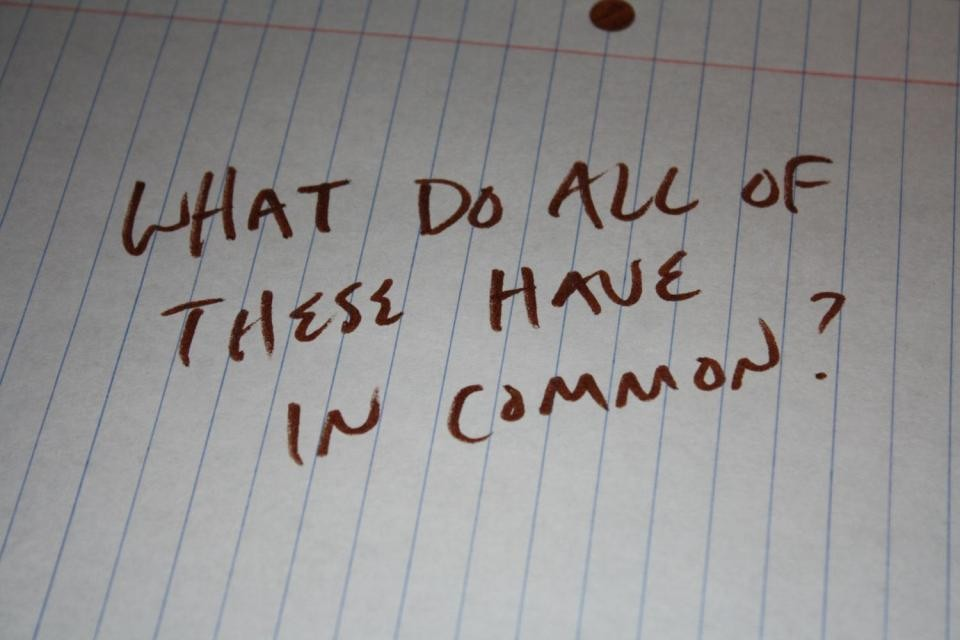 WHAT DO ALL OF
THESE HAVE
IN COMMON?